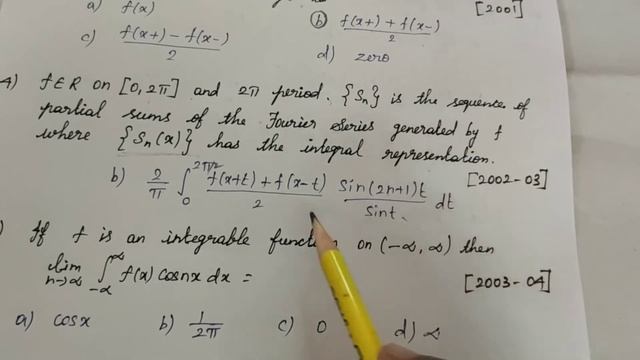 a) f(x) (b) f(x+) + f(x-) / 2 [2001]
c) f(x+) - f(x-) / 2 d) zero
4) f∈R on [0, 2π] and 2π period. {Sn} is the sequence of
partial sums of the Fourier Series generated by f
where {Sn(x)} has the integral representation.
b) 2/π ∫0^2π/2 f(x+t) + f(x-t) / 2 sin(2n+1)t / sint dt [2002-03]
) If f is an integrable function on (-∞, ∞) then
lim n→∞ ∫-∞^∞ f(x) cosnx dx = [2003-04]
a) cosx b) 1/2π c) 0 d) ∞